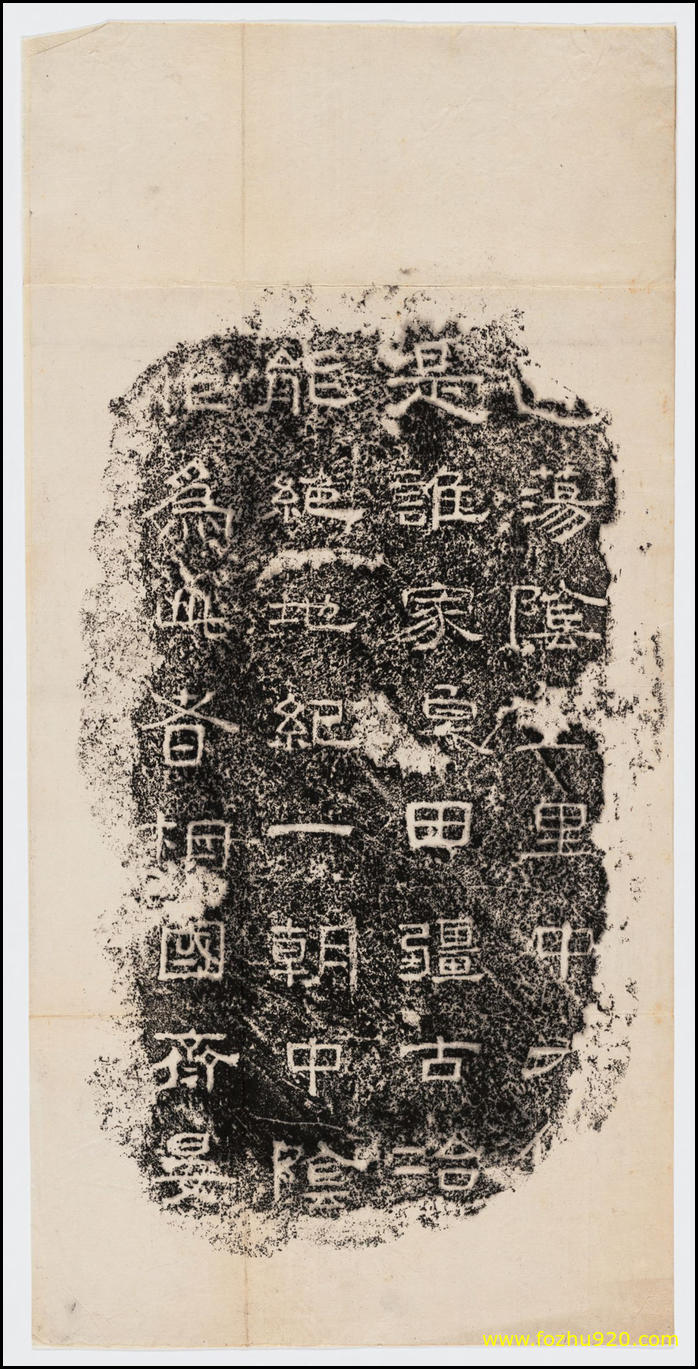 蕩陰里中
是誰家田疆古冶
能絕地紀一朝中陰
為此者相國齊晏
www.fozhu920.com